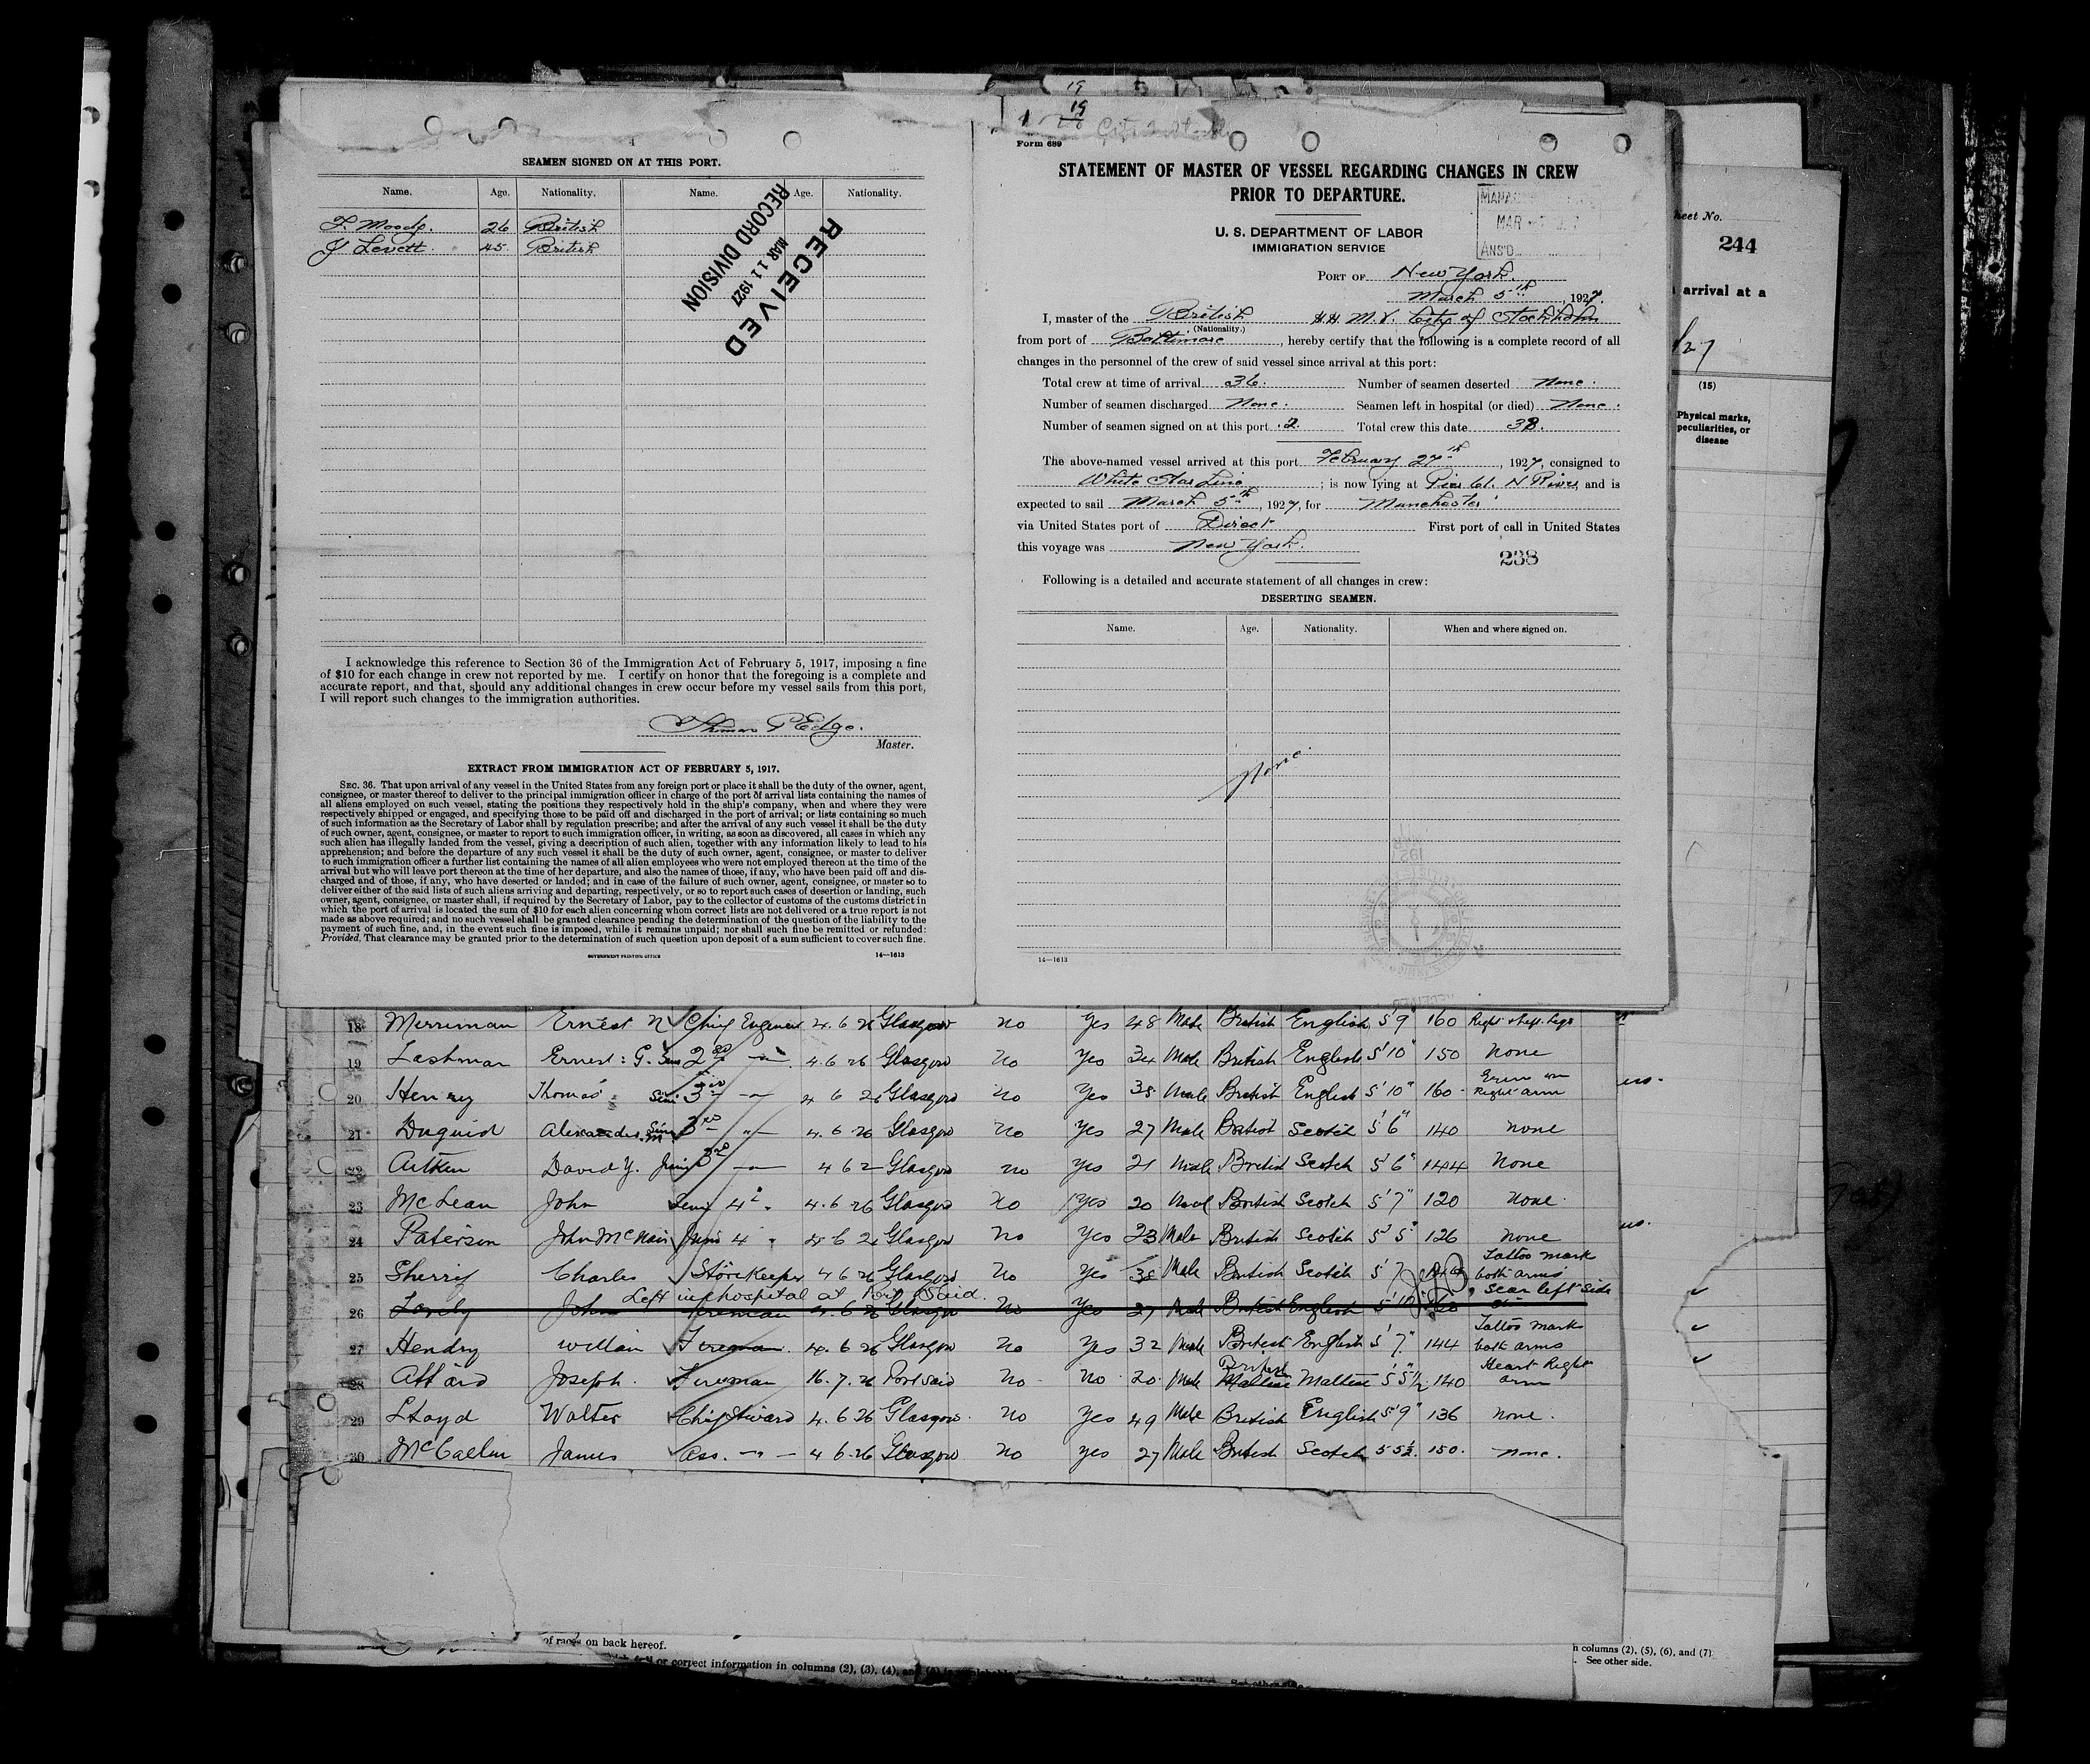 SEAMEN SIGNED ON AT THIS PORT.
Name. Age. Nationality. Name. Age. Nationality.
F. Moody. 26 British
J Levett. 45. British
RECEIVED
MAR 11 1927
RECORD DIVISION
I acknowledge this reference to Section 36 of the Immigration Act of February 5, 1917, imposing a fine
of $10 for each change in crew not reported by me. I certify on honor that the foregoing is a complete and
accurate report, and that, should any additional changes in crew occur before my vessel sails from this port,
I will report such changes to the immigration authorities.
Thomas P Edge.
Master.
EXTRACT FROM IMMIGRATION ACT OF FEBRUARY 5, 1917.
SEC. 36. That upon arrival of any vessel in the United States from any foreign port or place it shall be the duty of the owner, agent,
consignee, or master thereof to deliver to the principal immigration officer in charge of the port of arrival lists containing the names of
all aliens employed on such vessel, stating the positions they respectively hold in the ship's company, when and where they were
respectively shipped or engaged, and specifying those to be paid off and discharged in the port of arrival; or lists containing so much
of such information as the Secretary of Labor shall by regulation prescribe; and after the arrival of any such vessel it shall be the duty
of such owner, agent, consignee, or master to report to such immigration officer, in writing, as soon as discovered, all cases in which any
such alien has illegally landed from the vessel, giving a description of such alien, together with any information likely to lead to his
apprehension; and before the departure of any such vessel it shall be the duty of such owner, agent, consignee, or master to deliver
to such immigration officer a further list containing the names of all alien employees who were not employed thereon at the time of the
arrival but who will leave port thereon at the time of her departure, and also the names of those, if any, who have been paid off and dis-
charged and of those, if any, who have deserted or landed; and in case of the failure of such owner, agent, consignee, or master so to
deliver either of the said lists of such aliens arriving and departing, respectively, or so to report such cases of desertion or landing, such
owner, agent, consignee, or master shall, if required by the Secretary of Labor, pay to the collector of customs of the customs district in
which the port of arrival is located the sum of $10 for each alien concerning whom correct lists are not delivered or a true report is not
made as above required; and no such vessel shall be granted clearance pending the determination of the question of the liability to the
payment of such fine, and, in the event such fine is imposed, while it remains unpaid; nor shall such fine be remitted or refunded:
Provided, That clearance may be granted prior to the determination of such question upon deposit of a sum sufficient to cover such fine.
GOVERNMENT PRINTING OFFICE 14—1613
19
19
Form 689
STATEMENT OF MASTER OF VESSEL REGARDING CHANGES IN CREW
PRIOR TO DEPARTURE.
MAR
ANS'D
U. S. DEPARTMENT OF LABOR
IMMIGRATION SERVICE
PORT OF New York.
March 5th, 1927.
I, master of the British M.V. City of Stockholm
(Nationality.)
from port of Baltimore, hereby certify that the following is a complete record of all
changes in the personnel of the crew of said vessel since arrival at this port:
Total crew at time of arrival 36. Number of seamen deserted None.
Number of seamen discharged None. Seamen left in hospital (or died) None.
Number of seamen signed on at this port 2. Total crew this date 38.
The above-named vessel arrived at this port February 27th, 1927, consigned to
White Star Line; is now lying at Pier 61. N River, and is
expected to sail March 5th, 1927, for Manchester
via United States port of Direct First port of call in United States
this voyage was New York.
238
Following is a detailed and accurate statement of all changes in crew:
DESERTING SEAMEN.
Name. Age. Nationality. When and where signed on.
None
14—1613
Sheet No.
244
arrival at a
/27
(15)
Physical marks,
peculiarities, or
disease
18 Merriman Ernest N Chief Engineer 4.6 26 Glasgow no Yes 48 Male British English 5'9" 160 Right & Left Legs
19 Lashmar Ernest: G. 2nd 4.6 26 Glasgow No Yes 34 Male British English 5'10" 150 None
20 Henry Thomas 3rd 4 6 26 Glasgow no Yes 38 Male British English 5'10" 160 Right arm
21 Duguid Alexander 3rd 4.6 26 Glasgow No Yes 27 Male British Scotch 5'6" 140 none
22 Aitken David Y. Junr 3rd 4 6 2 Glasgow no Yes 21 Male British Scotch 5'6" 144 None
23 McLean John Senr 4th 4.6 26 Glasgow no Yes 20 Male British Scotch 5'7" 120 none.
24 Paterson John McNair Junr 4 4 6 26 Glasgow No Yes 23 Male British Scotch 5'5" 126 none
25 Sherry Charles Storekeeper 4 6 26 Glasgow No Yes 38 Male British Scotch 5'7 Tattoo mark both arms
Left in hospital at Port Said.
26 Lovely John Fireman 4.6 26 Glasgow No Yes 27 Male British English 5'10 Scar left side
27 Hendry William Fireman 4.6 26 Glasgow no Yes 32 Male British English 5'7" 144 Tattoo mark both arms
28 Attard Joseph. Fireman 16.7.26 Port Said No no 20 Male British Maltese Maltese 5'5½ 140 Heart Right arm
29 Lloyd Walter Chief Steward 4.6 26 Glasgow. no Yes 49 Male British English 5'9" 136 none.
30 McCallum James Ass. 4 6.26 Glasgow no Yes 27 Male British Scotch 5 5½. 150. none.
of races on back hereof.
or correct information in columns (2), (3), (4), and
See other side
n columns (2), (5), (6), and (7)
See other side.